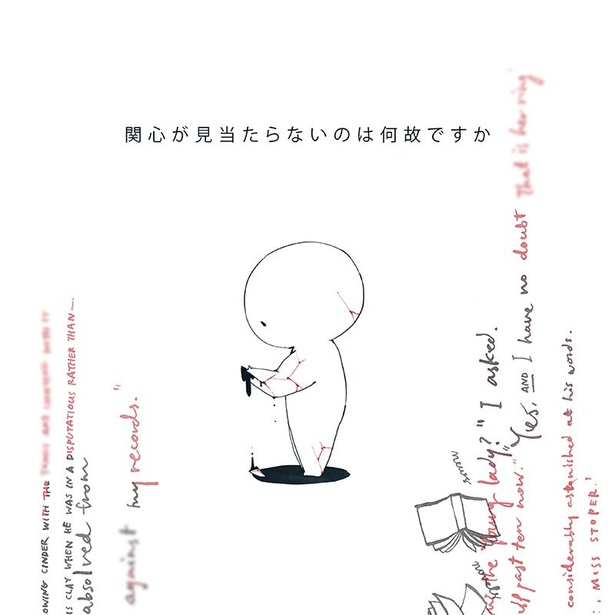 関心が見当たらないのは何故ですか
OWING CINDER WITH THE
IS CLAY WHEN HE WAS IN A DISPUTATIOUS RATHER THAN—
absolved from
against my records."
the young lady?" I asked.
half past ten now." "Yes, AND I have no doubt that is her ring
considerably astonished at his words.
, MISS STOPER.'